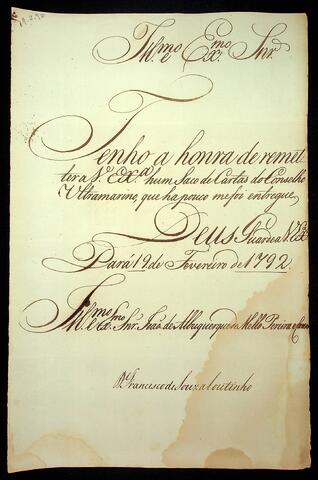 Illmo e Exmo Snr.
Tenho a honra de remet-
ter a V. Exa. hum Saco de Cartas do Conselho
Ultramarino, que ha pouco me foi entregue.
Deus Guarde a V. Exa.
Pará 19 de Fevereiro de 1792.
Illmo e Exmo Snr. João de Albuquerque de Mello Pereira e Caceres
D. Francisco de Souza Coutinho